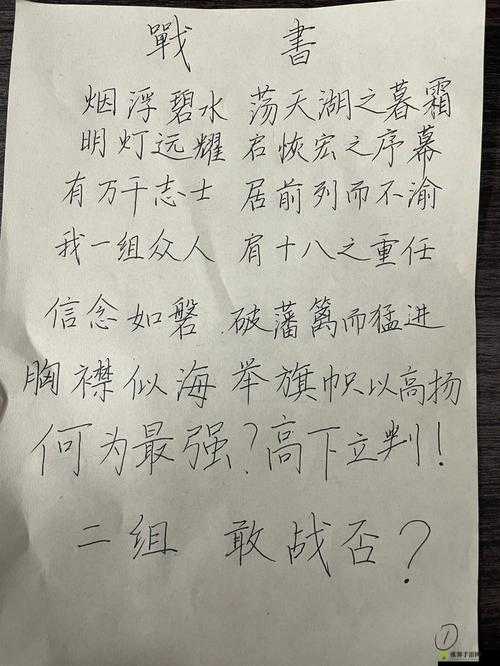 戰 書
烟浮碧水 荡天湖之暮霜
明灯远耀 启恢宏之序幕
有万千志士 居前列而不渝
我一组众人 肩十八之重任
信念如磐 破藩篱而猛进
胸襟似海 举旗帜以高扬
何为最强?高下立判!
二组 敢战否?
①